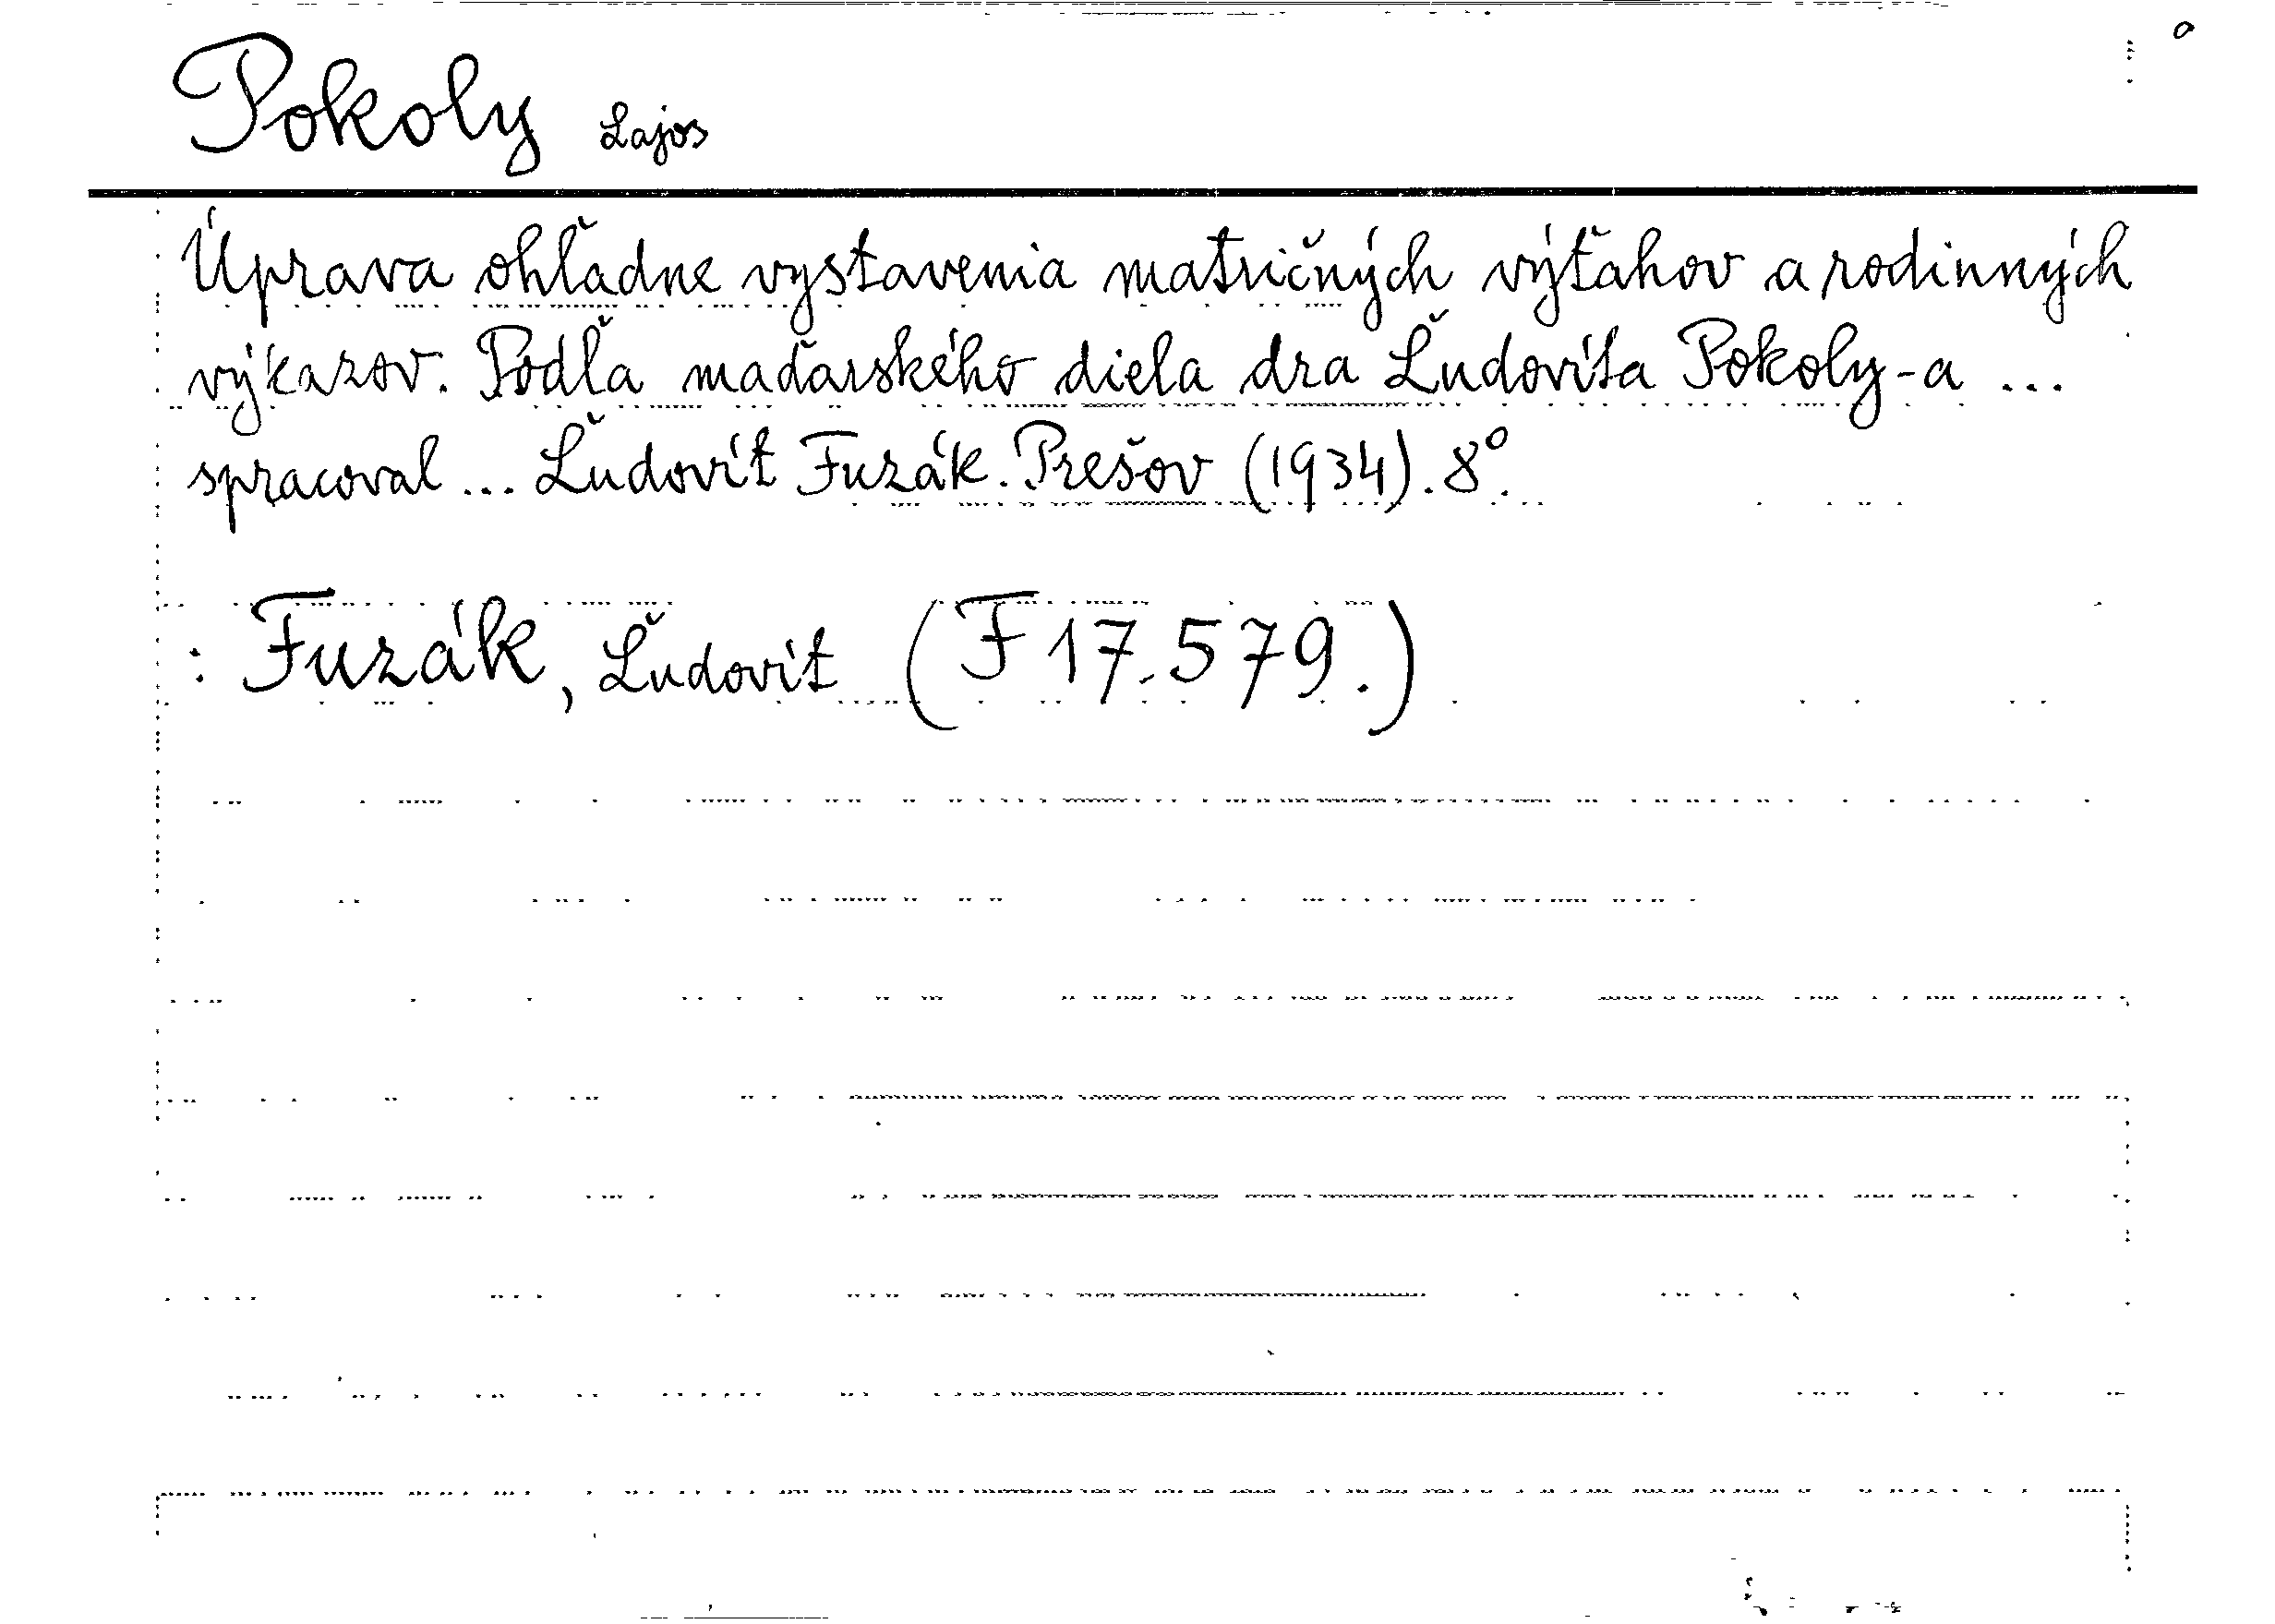 Pokoly Lajos
Úprava ohľadne vystavenia matričných výťahov a rodinných
výkazov. Podľa maďarského diela dra Ľudovíta Pokoly-a ...
spracoval ... Ľudovít Fuzák. Prešov (1934). 8°.
: Fuzák, Ľudovít (F 17.579.)